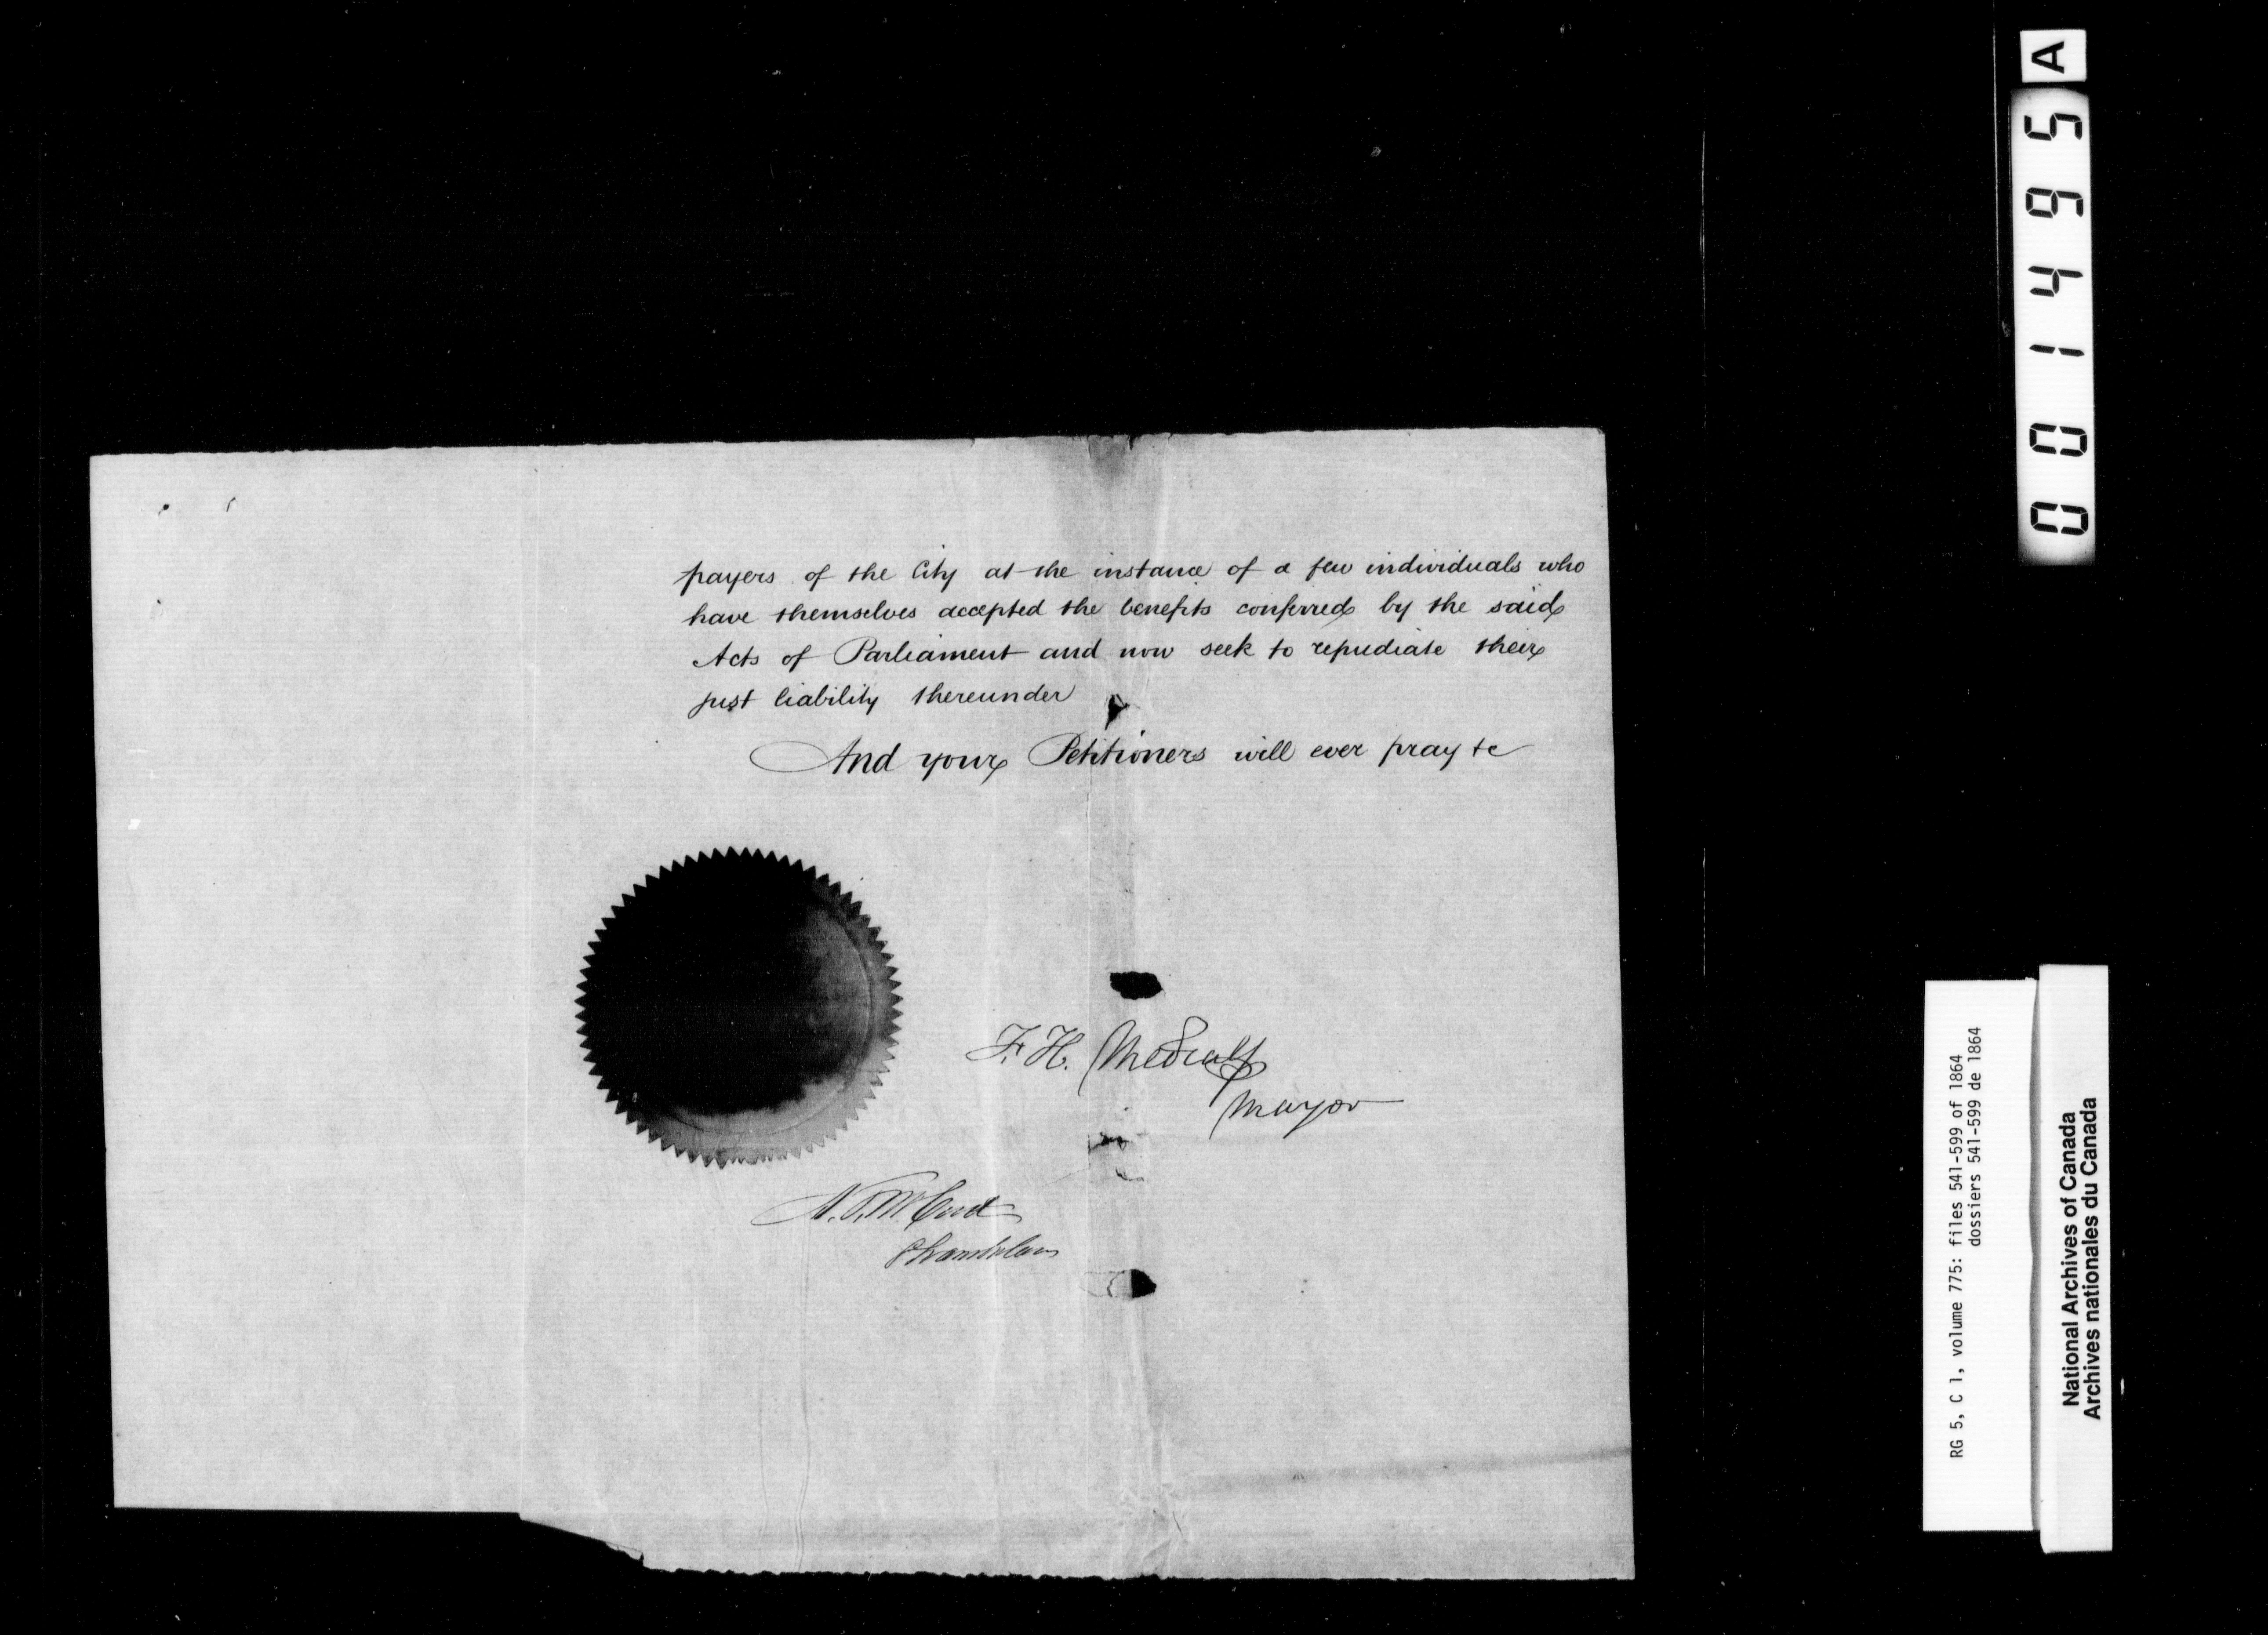 payers of the City at the instance of a few individuals who
have themselves accepted the benefits conferred by the said
Acts of Parliament and now seek to repudiate their
just liability thereunder
And your Petitioners will ever pray &c
F. H. Medcalf
Mayor
A. T. McCord
Chamberlain
001495 A
RG 5, C 1, volume 775: files 541-599 of 1864
dossiers 541-599 de 1864
National Archives of Canada
Archives nationales du Canada